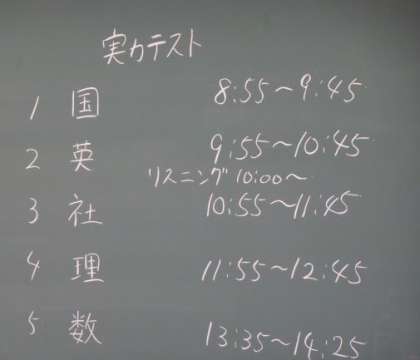 実力テスト
1 国 8:55~9:45
2 英 9:55~10:45
リスニング 10:00~
3 社 10:55~11:45
4 理 11:55~12:45
5 数 13:35~14:25